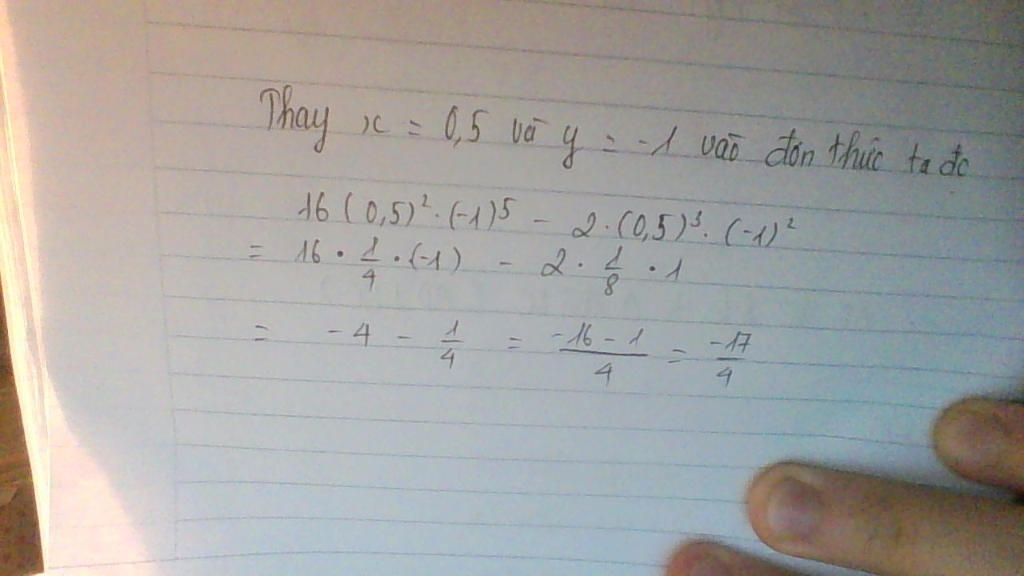 Thay x = 0,5 và y = -1 vào đơn thức ta đc
16(0,5)² · (-1)⁵ - 2 · (0,5)³ · (-1)²
= 16 · 1/4 · (-1) - 2 · 1/8 · 1
= -4 - 1/4 = (-16 - 1)/4 = -17/4